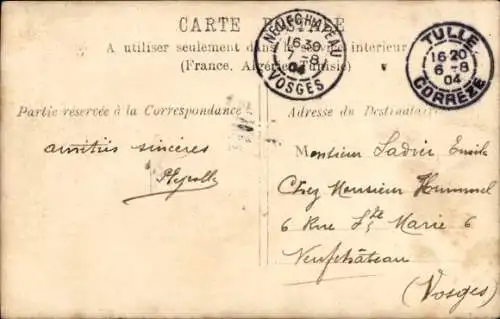 CARTE POSTALE
NEUFCHATEAU
16 30
7-8
04
VOSGES
TULLE
16 20
6-8
04
CORREZE
A utiliser seulement dans le service intérieur
(France, Algérie, Tunisie)
Partie réservée à la Correspondance
Adresse du Destinataire
amitiés sincères
Monsieur Ladier Emile
Chez Monsieur Hummel
6 Rue Ste Marie 6
Neufchâteau
(Vosges)